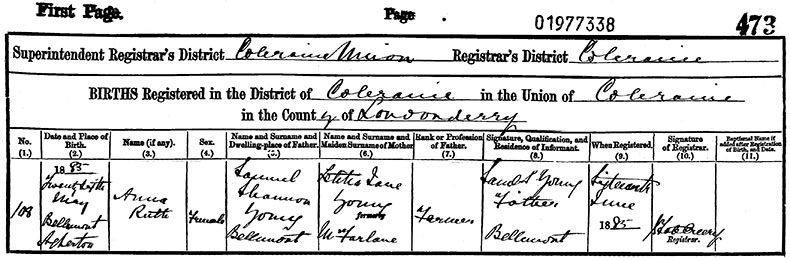 First Page. Page 01977338 473
Superintendent Registrar's District Coleraine Union Registrar's District Coleraine
BIRTHS Registered in the District of Coleraine in the Union of Coleraine
in the County of Londonderry
No. (1.) Date and Place of Birth. (2.) Name (if any). (3.) Sex. (4.) Name and Surname and Dwelling-place of Father. (5.) Name and Surname and Maiden Surname of Mother (6.) Rank or Profession of Father. (7.) Signature, Qualification, and Residence of Informant. (8.) When Registered. (9.) Signature of Registrar. (10.) Baptismal Name if added after Registration of Birth, and Date. (11.)
108
1885
May
Bellemont
Agherton
Anna
Ruth
Female
Samuel
Shannon
Young
Bellemont
Letitia Jane
Young
formerly
McFarlane
Farmer
Saml S Young
Father
Bellemont
Sixteenth
June
1885
Registrar.